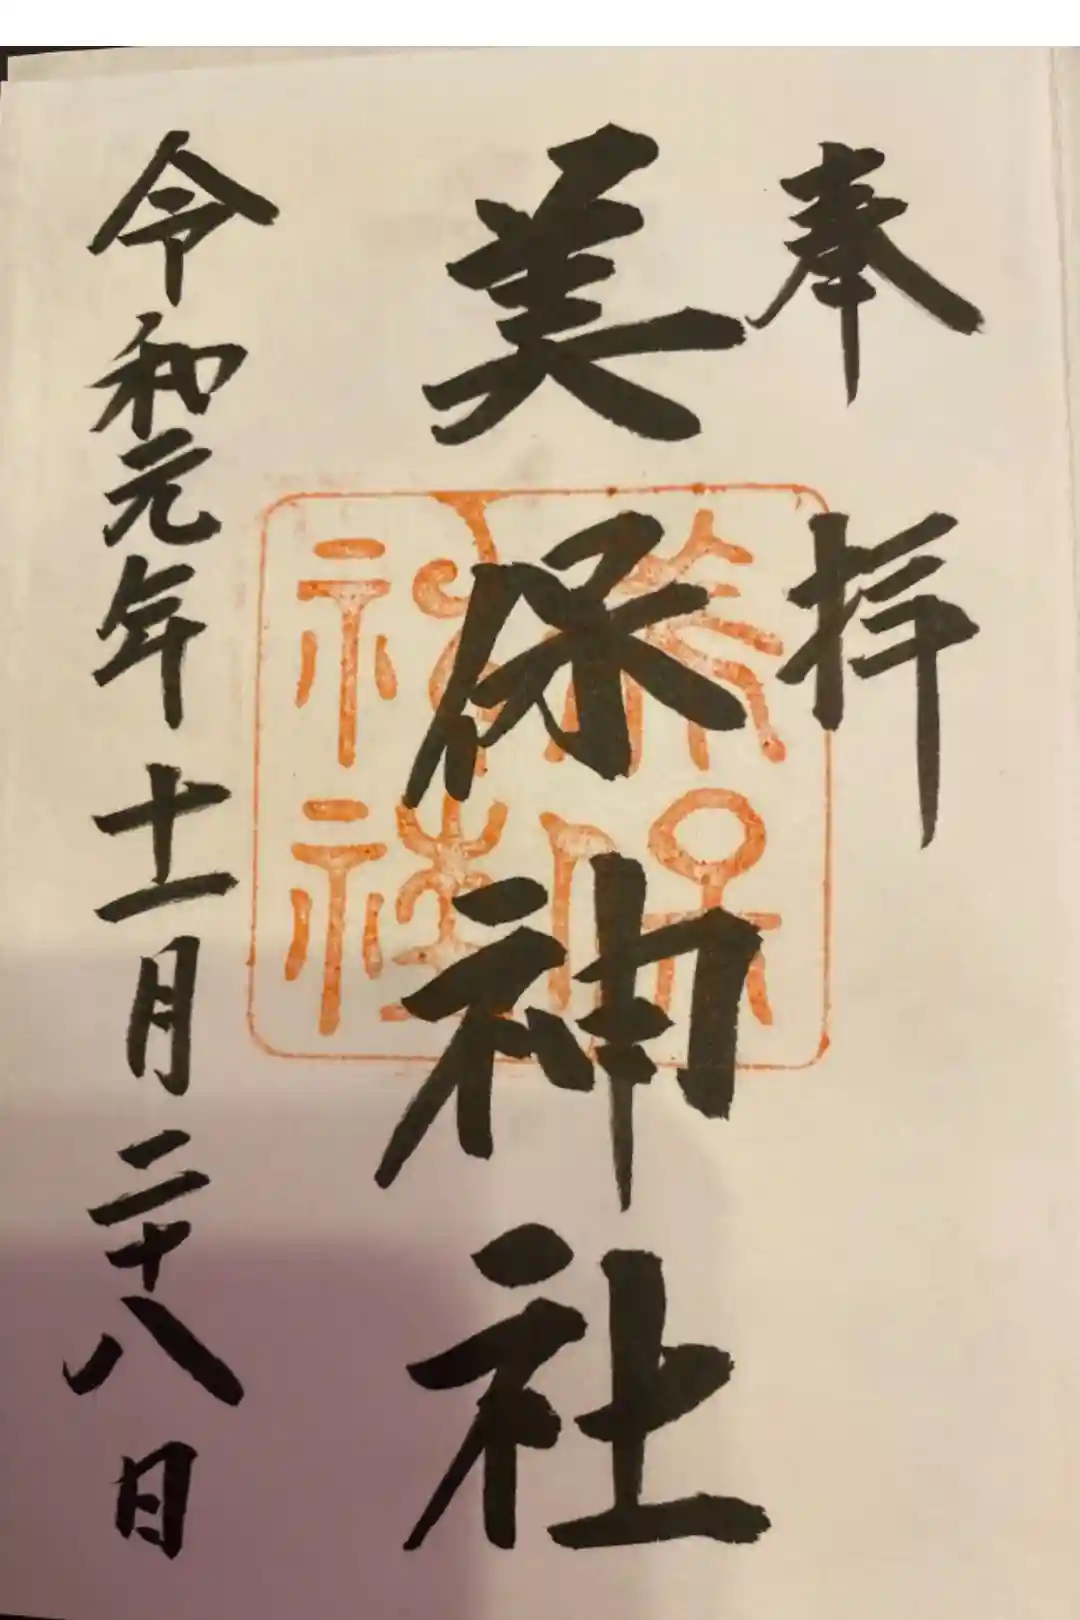 奉拝
美保神社
美保
神社
令和元年十一月二十八日